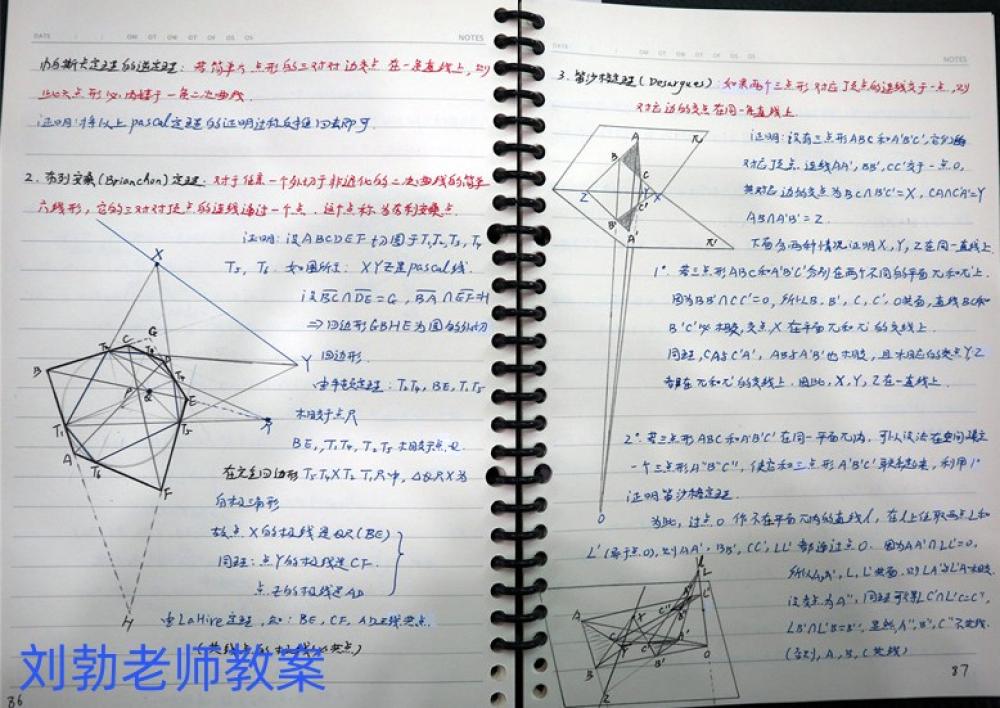 DATE
NOTES
帕斯卡定理的逆定理：若简单六点形的三对对边交点在一条直线上，则
此六点形必内接于一条二次曲线.
证明：将以上pascal定理的证明过程反推回去即可.
2. 布列安桑(Brianchon)定理：对于任意一个外切于非退化的二次曲线的简单
六线形，它的三对对顶点的连线通过一个点．这个点称为布列安桑点.
证明：设ABCDEF切圆于T₁,T₂,T₃,T₄
T₅, T₆. 如图所示：XYZ是pascal线.
设BC∩DE=G, BA∩EF=H
⇒四边形GBHE为圆的外切
四边形.
定理：T₂T₄, BE, T₁T₅
相交于点R
BE, T₁T₄, T₂T₅相交于点Q.
在完全四边形T₅T₄XT₂T₁R中，△QRX为
自极三角形
故点X的极线是QR(BE)
同理：点Y的极线是CF.
点Z的极线是AD
由LaHire定理，知：BE, CF, AD三线共点.
(共线点的极线必共点)
X
G
C
Y
B
E
T₁
T₅
A
T₆
F
H
刘勃老师教案
86
DATE
NOTES
3. 笛沙格定理(Desargues)：如果两个三点形对应顶点的连线交于一点，则
对应边的交点在同一直线上.
证明：设有三点形ABC和A'B'C',它们的
对应顶点连线AA', BB', CC'交于一点O,
其对应边的交点为BC∩B'C'=X, CA∩C'A'=Y
AB∩A'B'=Z.
下面分两种情况证明X, Y, Z在同一直线上
1° 若三点形ABC和A'B'C'分别在两个不同的平面π和π'上.
因为BB'∩CC'=O, 所以B, B', C, C', O共面，直线BC和
B'C'必相交，交点X在平面π和π'的交线上.
同理，CA与C'A', AB与A'B'也相交，且相应的交点Y, Z
都在π和π'的交线上．因此，X, Y, Z在一直线上.
2° 若三点形ABC和A'B'C'在同一平面π内，可以设法在空间建立
一个三点形A"B"C", 使它和三点形A'B'C'联系起来，利用1°
证明笛沙格定理.
为此，过点O作不在平面π内的直线l, 在l上任取两点L和
L'(异于点O), 则AA', BB', CC', LL'都通过点O. 因为AA'∩LL'=O,
所以A,A', L, L'共面．则LA与L'A'相交.
设交点为A", 同理可得LC∩L'C'=C",
LB∩L'B'=B", 显然, A", B", C"不共线.
(否则, A, B, C共线)
A
B
C
π
Z
Y
X
B'
C'
A'
π'
O
L
L'
A
X
C
B'
O
B
Z
87